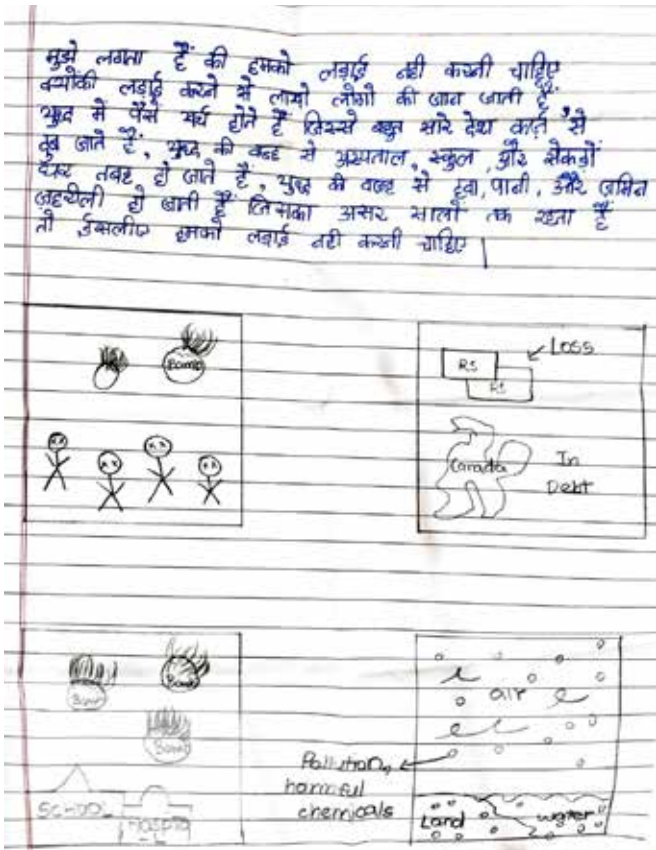 मुझे लगता हैं की हमको लड़ाई नही करनी चाहिए
क्योंकी लड़ाई करने से लाखो लोगो की जान जाती हैं
युध्द में पैसे खर्च होते हैं जिससे बहुत सारे देश कर्ज़ से
डुब जाते हैं, युध्द की वजह से अस्पताल, स्कुल और सेकड़ों
घर तबह हो जाते हैं, युध्द की वजह से हवा, पानी, और ज़मिन
ज़हरीली हो जाती हैं जिसका असर सालों तक रहता हैं
तो ईसलीए हमको लड़ाई नही करनी चाहिए |
Bomb
Loss
RS
RS
Canada
In
Debt
Bomb
Bomb
Bomb
SCHOOL
HOSPITA
-L
air
Pollution,
harmful
chemicals
Land
water